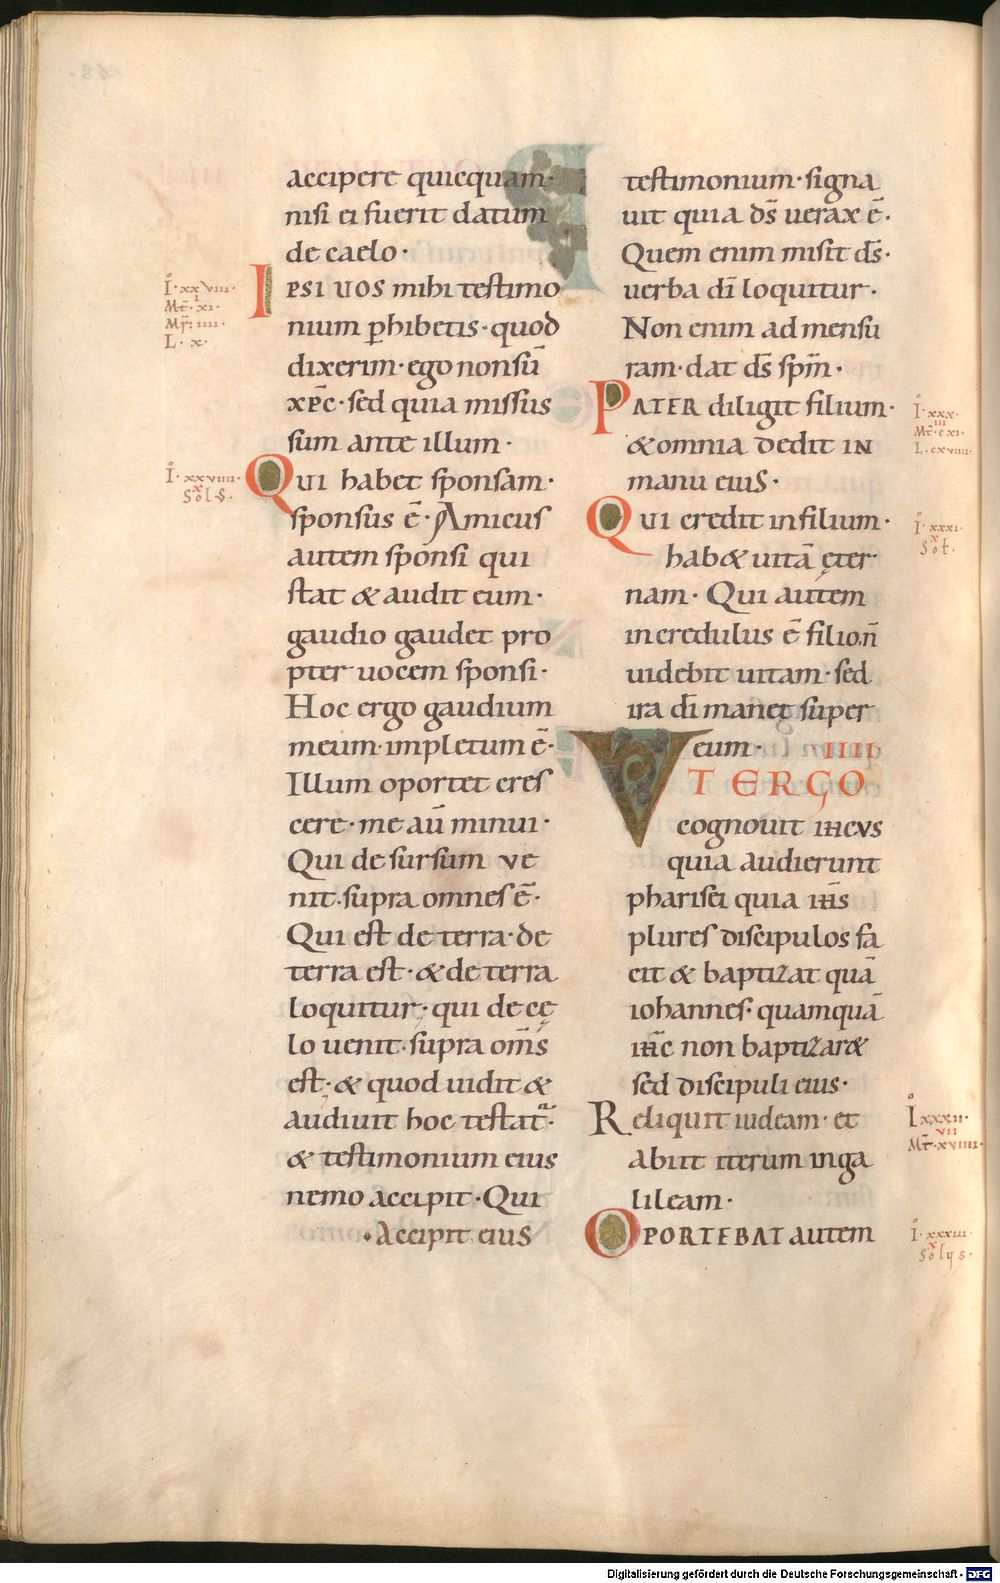 accipere quicquam·
nisi ei fuerit datum
de caelo·
İ·xxviii·
Mt̄·xi·
Mr̄·iiii·
L·x·
IPSI UOS mihi testimo
nium p̱hibetis·quod
dixerim·ego non sū
xp̄c·sed quia missus
sum ante illum·
İ·xxviiii·
Solus·
QUI habet sponsam·
sponsus ē·Amicus
autem sponsi qui
stat & audit eum·
gaudio gaudet pro
pter uocem sponsi·
Hoc ergo gaudium
meum impletum ē·
Illum oportet cres
cere·me aū minui·
Qui de sursum ve
nit·supra omnes ē·
Qui est de terra·de
terra est·& de terra
loquitur·qui de cę
lo uenit·supra om̄s
est·& quod uidit &
audiuit hoc testat·
& testimonium eius
nemo accipit·Qui
·Accipit eius
testimonium·signa
uit quia ds̄ uerax ē·
Quem enim misit ds̄·
uerba dī loquitur·
Non enim ad mensu
ram·dat ds̄ spm̄·
PATER diligit filium·
& omnia dedit IN
manu eius·
İ·xxx·
iii
Mt̄·cxi·
L·cxviiii·
QUI credit in filium·
hab& uitā ęter
nam·Qui autem
incredulus ē filio·n̄
uidebit uitam·sed
ira dī manet super
eum·
İ·xxxi·
IIII
VT ERGO
cognouit ih̄cvs
quia audierunt
pharisei quia ih̄s
plures discipulos fa
cit & baptizat quā
iohannes·quamquā
ih̄c non baptizar&
sed discipuli eius·
Reliquit iudeam·et
abiit iterum in ga
lileam·
İ·xxxii·
vii
Mt̄·xviiii·
OPORTEBAT autem
İ·xxxiii·
Digitalisierung gefördert durch die Deutsche Forschungsgemeinschaft - DFG